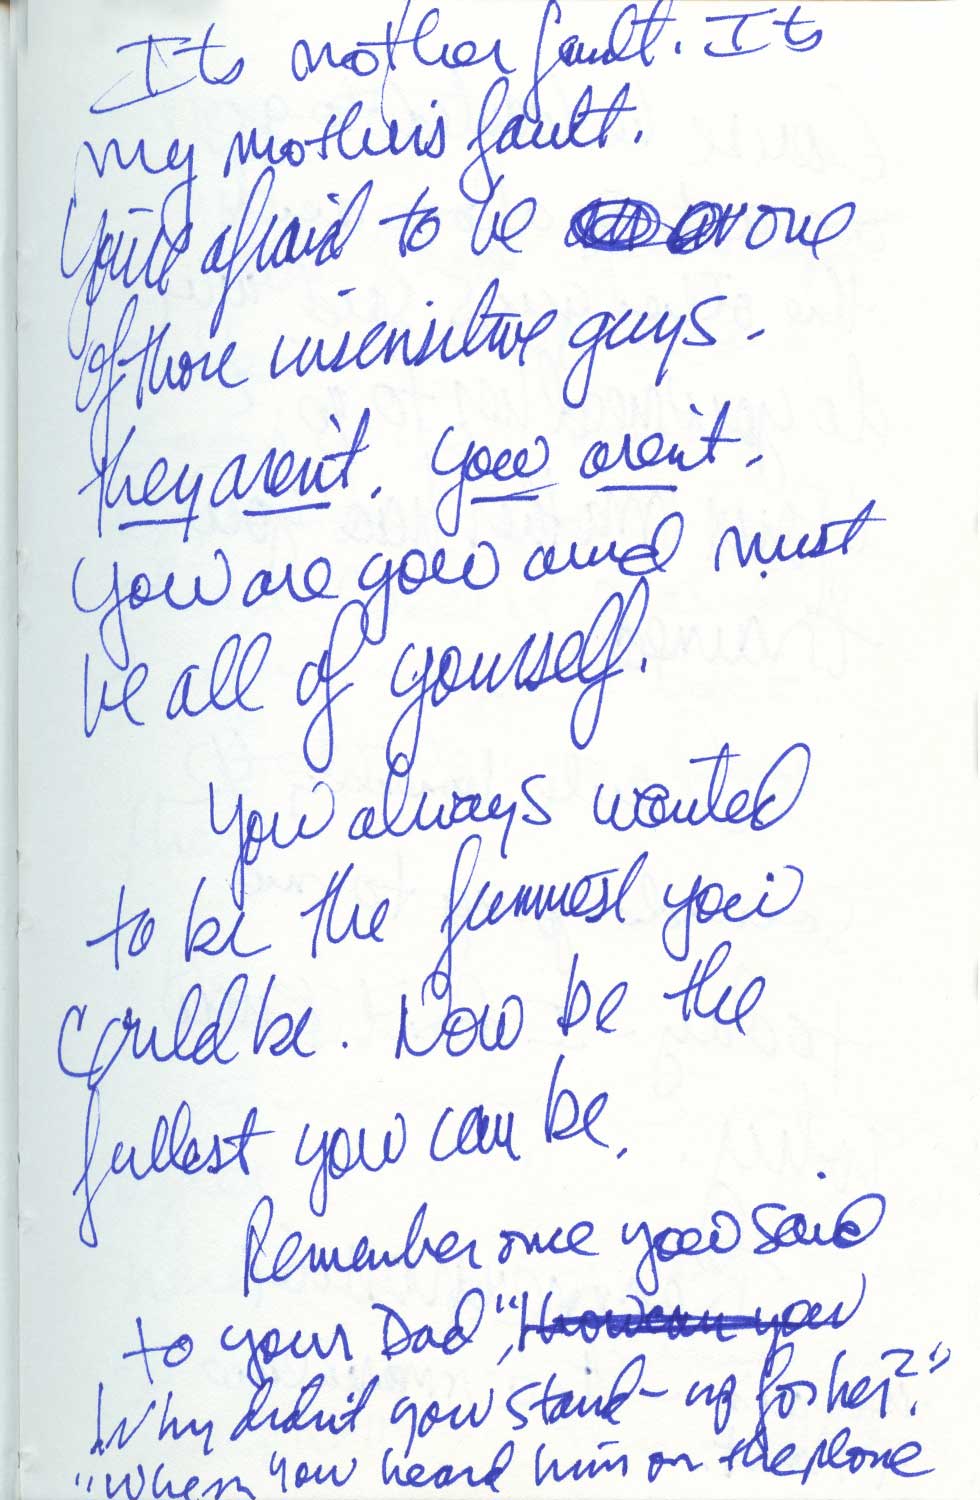 Its mother fault. Its
my mothers fault.
You're afraid to be one
of those insensitive guys -
they arent. You arent.
You are you and must
be all of yourself.
You always wanted
to be the funniest you
could be. Now be the
fullest you can be.
Remember once you said
to your Dad, "How can you
Why didn't you stand-up for her?"
"When you heard him on the phone